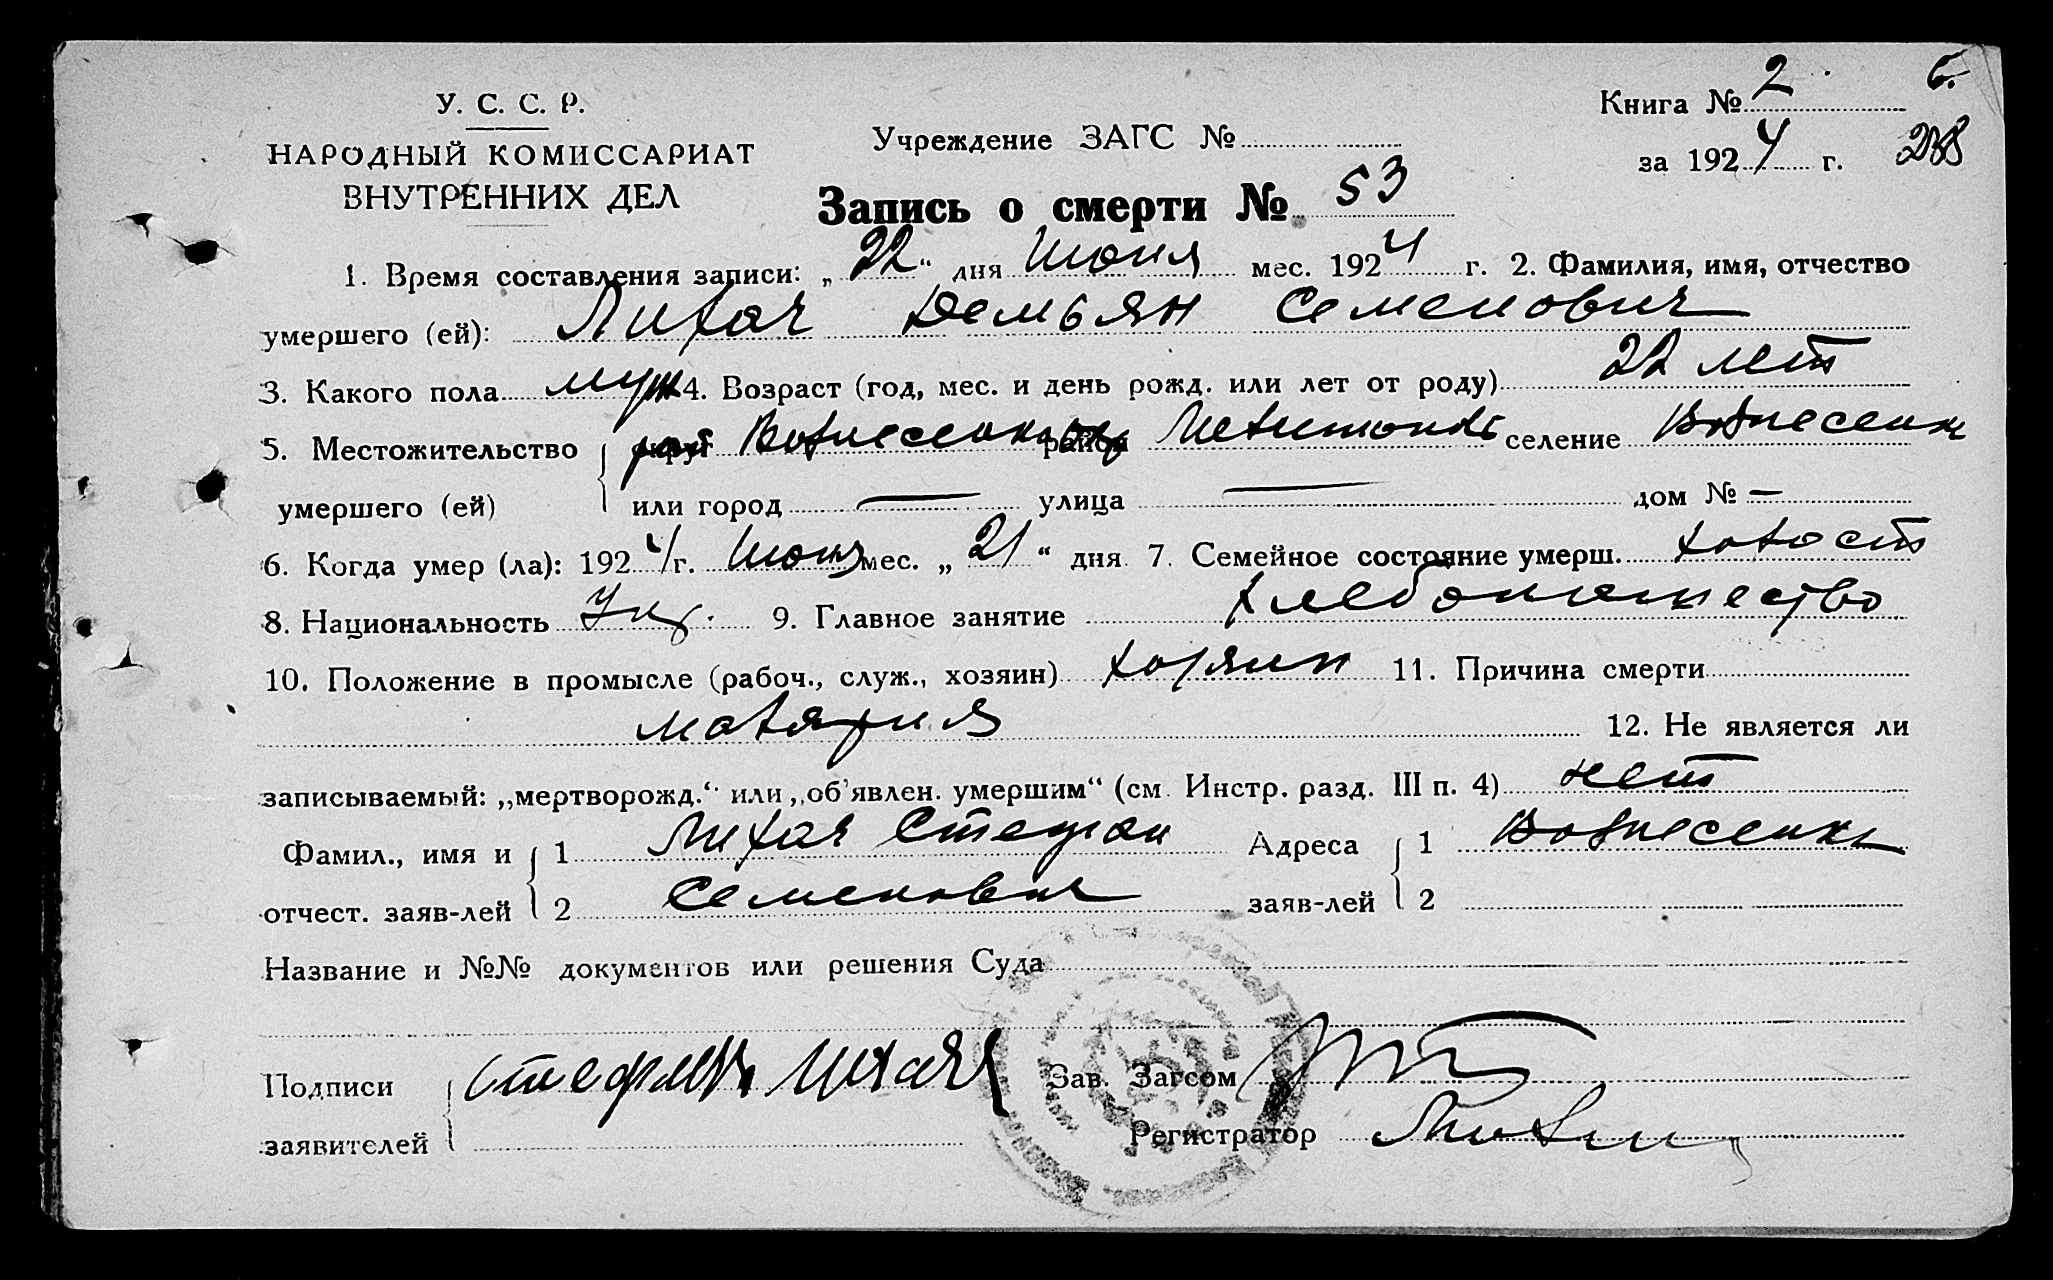 У. С. С. Р.
НАРОДНЫЙ КОМИССАРИАТ
ВНУТРЕННИХ ДЕЛ
Учреждение ЗАГС №
Книга № 2
за 1924 г.
Запись о смерти № 53
1. Время составления записи: „22“ дня Июня мес. 1924 г. 2. Фамилия, имя, отчество
умершего (ей): Лихач Демьян Семенович
3. Какого пола муж 4. Возраст (год, мес. и день рожд. или лет от роду) 22 лет
5. Местожительство округ район селение Вознесенк
умершего (ей) или город — улица — дом № —
6. Когда умер (ла): 1924 г. Июня мес. „21“ дня 7. Семейное состояние умерш. холост
8. Национальность Укр. 9. Главное занятие хлебопашество
10. Положение в промысле (рабоч., служ., хозяин) хозяин 11. Причина смерти
малярия 12. Не является ли
записываемый: „мертворожд.“ или „об'явлен. умершим“ (см. Инстр. разд. III п. 4) нет
Фамил., имя и 1 Лихач Стефан Адреса 1 Вознесенка
отчест. заяв-лей 2 Семенович заяв-лей 2
Название и №№ документов или решения Суда
Подписи Зав. Загсом
заявителей Регистратор